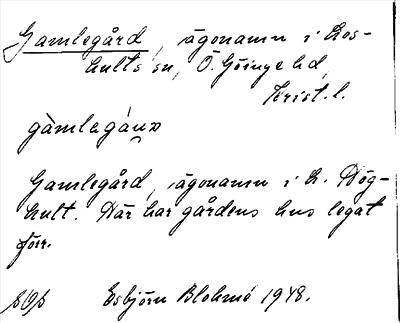 Gamlegård, ägonamn i Los-
hults sn, Ö. Göinge hd,
Krist. l.
gàmlegánṣ
Gamlegård, ägonamn i L. Hög-
hult. Där har gårdens hus legat
förr.
Esbjörn Blohmé 1948.